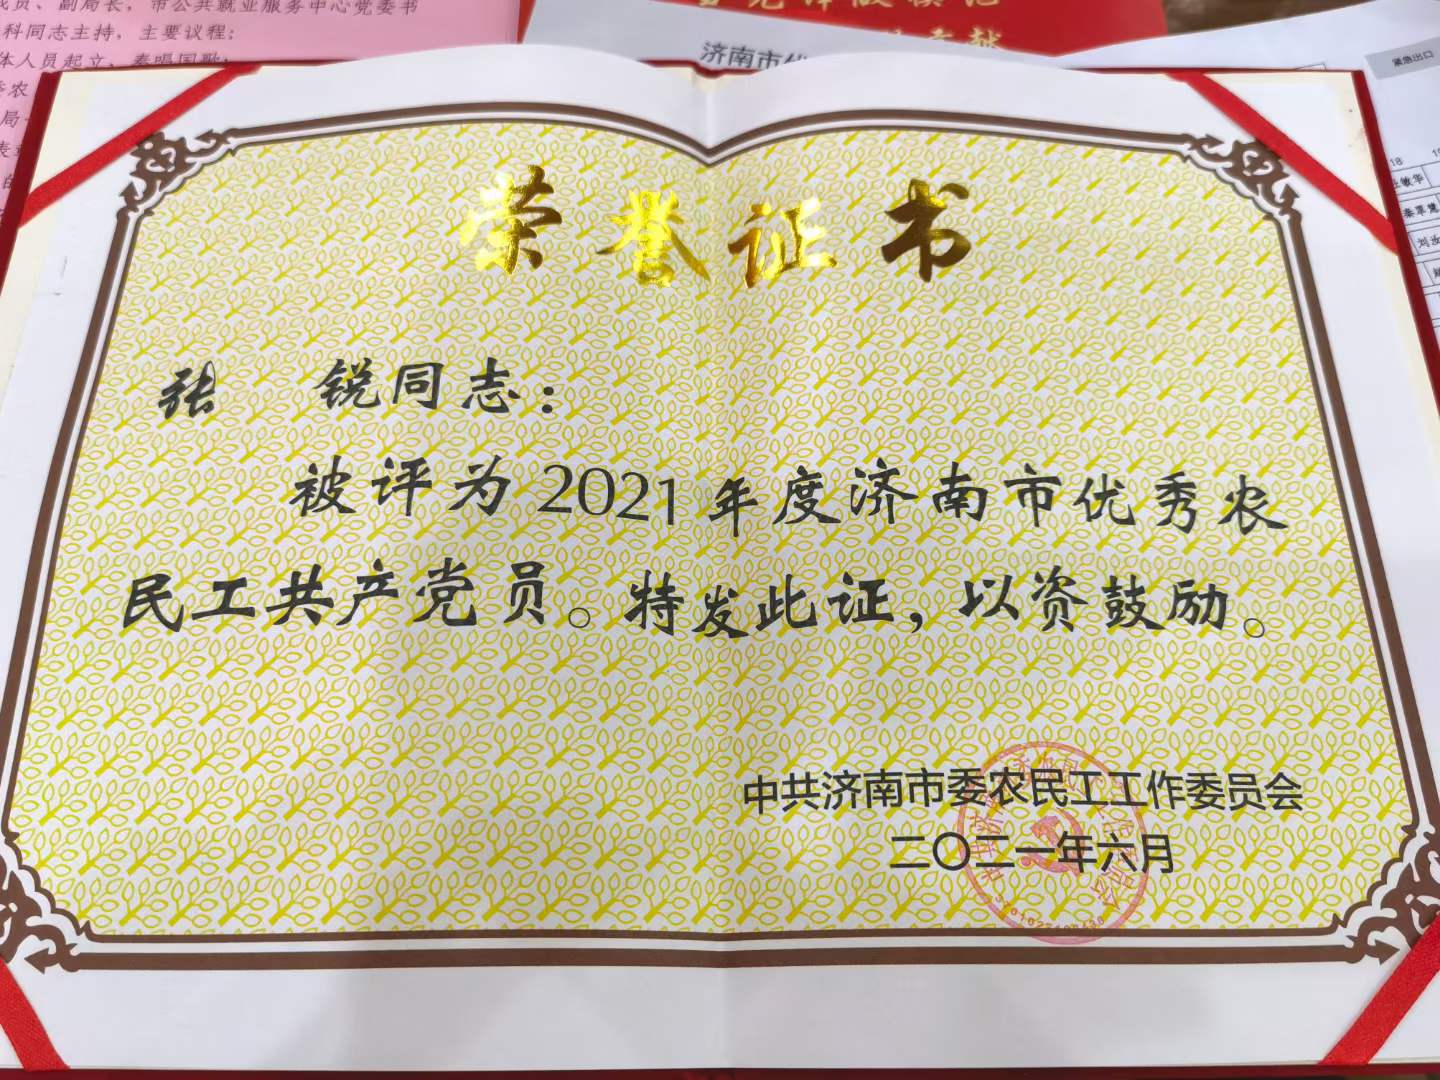 副局长，市公共就业服务中心党委书
科同志主持，主要议程：
体人员起立，奏唱国歌；
济南市优
紧急出口
18
荣誉证书
张 锐同志：
被评为2021年度济南市优秀农
民工共产党员。特发此证，以资鼓励。
中共济南市委农民工工作委员会
二〇二一年六月